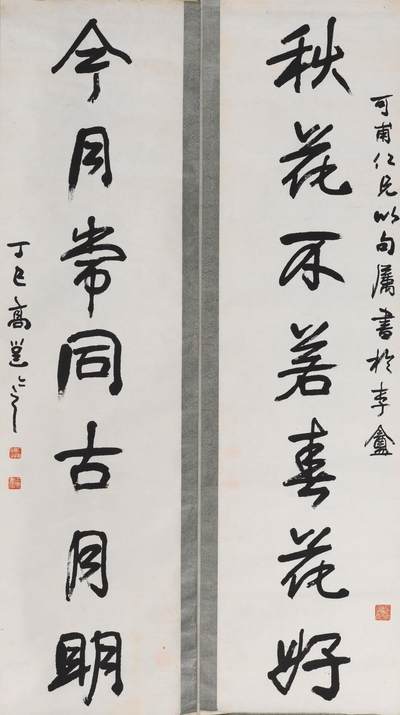 可甫仁兄以句属書於李盦
秋花不若春花好
今月常同古月明
丁巳高邕之